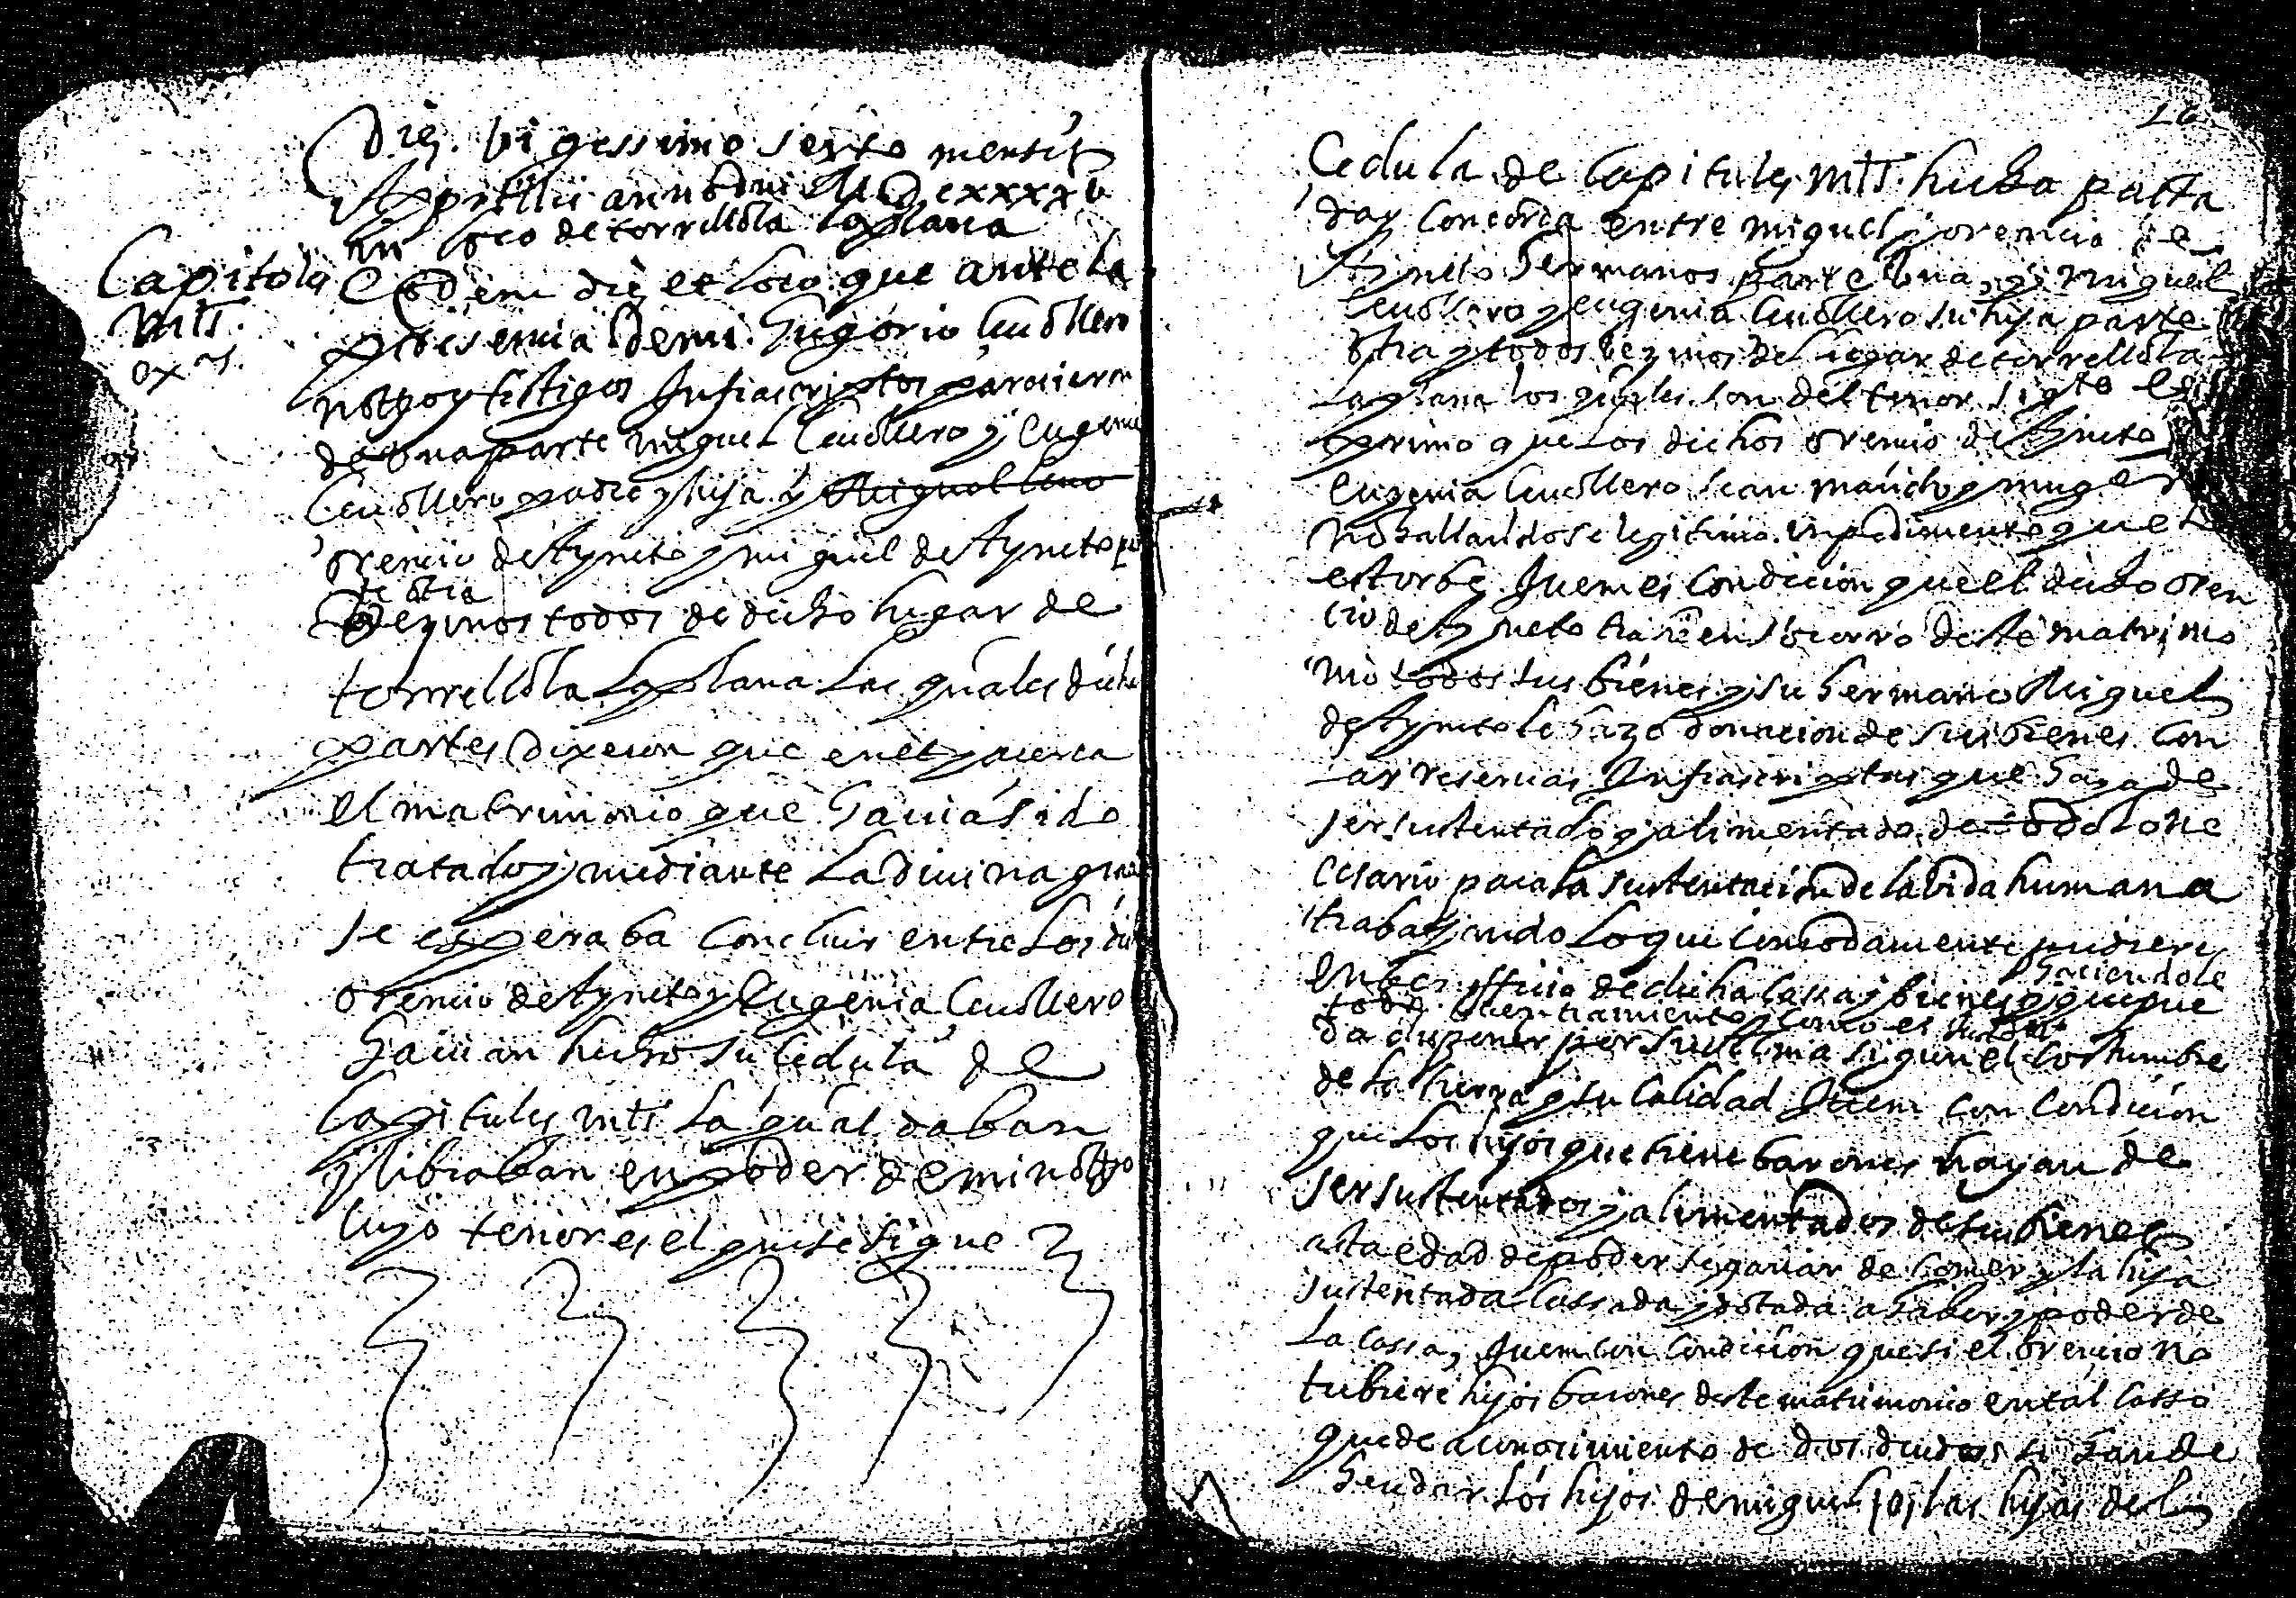 Die vigessimo sexto mensis
Aprillii anno dni MDCxxxxv
in loco de torrellola la plana
Capitoles
mts.
Eodem die et loco que ante la
presencia de mi Gregorio Cuello
notro y testigos Infrascriptos parecieron
de una parte miguel y Eugenia
padre y hija y Miguel
orencio de Ayneto y miguel de Ayneto
de otra
Vezinos todos de dicho lugar de
torrellola La plana Las quales dichas
partes dixeron que en et y acerca
el matrimonio que Hauia sido
tratado y mediante La divina gracia
se esperaba Concluir entre Los
orencio de Ayneto y Eugenia
Hauian hecho su cedula de
Capitules mts La qual daban
y libraban en poder de mi notro
cuyo tenor es el que se sigue
16
Cedula de Capitules mts. hecha pacta
da y Concorda entre miguel y orencio de
Ayneto Hermanos parte una, y miguel
y eugenia su hija parte
otra y todos bezinos del lugar de torrellola
La plana los quales son del tenor sigte
primo que Los dichos orencio de Ayneto
Eugenia sean marido y muger
no hallandose legitimo inpedimento que lo
estorbe Ittem es condicion que el dicho oren
cio de Ayneto traie en socorro deste matrimo
nio todos sus bienes y su hermano Miguel
de Ayneto le haze donacion de sus bienes con
Las reservas Infrascriptas que haya de
ser sustentado y alimentado de todo lo ne
cesario para la sustentacion de la bida humana
trabajando Lo que comodamente pudiere
en beneficio de dicha Cassa y bienes y que pue
haciendole
todo buen tratamiento como es
da disponer por su alma segun el costumbre
de la tierra y su Calidad Ittem con Condicion
que Los hijos que tiene barones hayan de
ser sustentados y alimentados de sus bienes
asta edad de poder se ganar de Comer y la hija
sustentada Cassada y dotada a haber y poder de
La Cassa, Ittem con Condicion que si el orencio no
tubiere hijos barones deste matrimonio en tal Casso
quede a conocimiento de dos deudos si Han de
heredar Los hijos de miguel o las hijas del